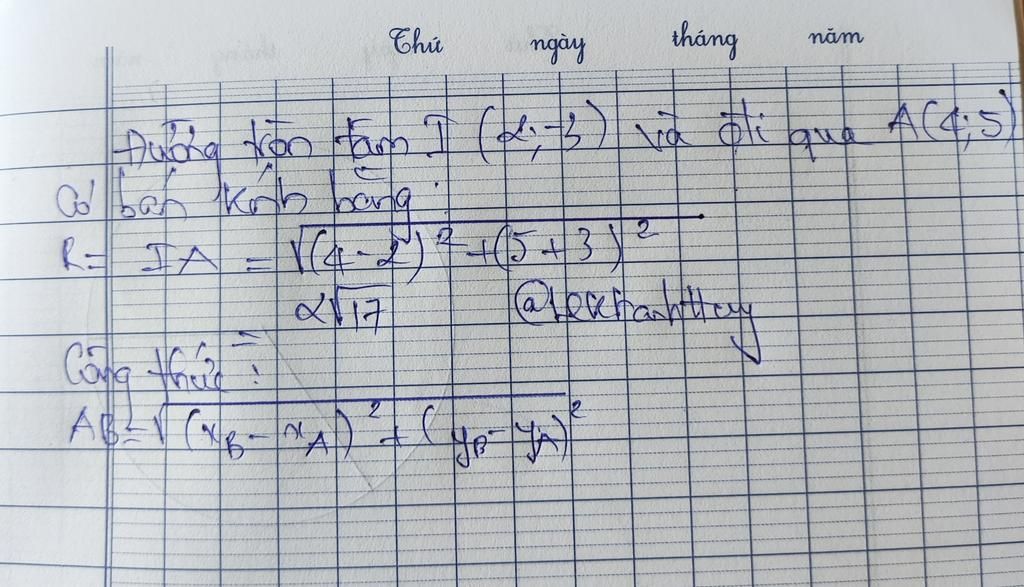 Thứ ngày tháng năm
Đường tròn tâm I (2;-3) và đi qua A(4;5)
Có bán kính bằng:
R = IA = √(4-2)² + (5+3)²
2√17 @lekhanhHuy
=
Công thức:
AB = √(x_B - x_A)² + (y_B - y_A)²